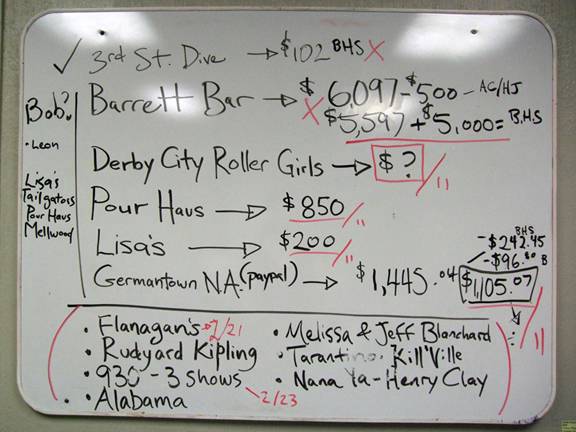 ✓ 3rd St. Dive → $102 BHS X
Bob?
• Leon
Lisa's
Tailgators
Pour Haus
Mellwood
Barrett Bar → $6,097 - $500 — AC/HJ
X $5,597 + $5,000 = B.H.S
Derby City Roller Girls → $? / 11
Pour Haus → $850 / "
Lisa's → $200 / "
BHS
- $242.45
- $96.80 B
Germantown N.A. (paypal) → $1,445.04 $1,105.07 / 11
• Flanagan's → 2/21
• Rudyard Kipling
• 930 - 3 shows
• Alabama 2/23
• Melissa & Jeff Blanchard
• Tarantino. Kill'Ville
• Nana Ya - Henry Clay